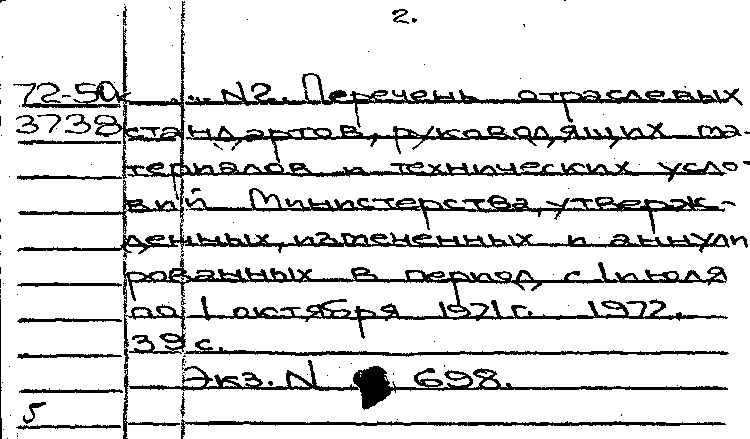 2.
72-50к ... N2. Перечень отраслевых
3738 стандартов, руководящих ма-
териалов и технических усло-
вий Министерства, утверж-
денных, измененных и аннули
рованных в период с 1 июля
по 1 октября 1971г. 1972.
39 с.
Экз. N 698.
5